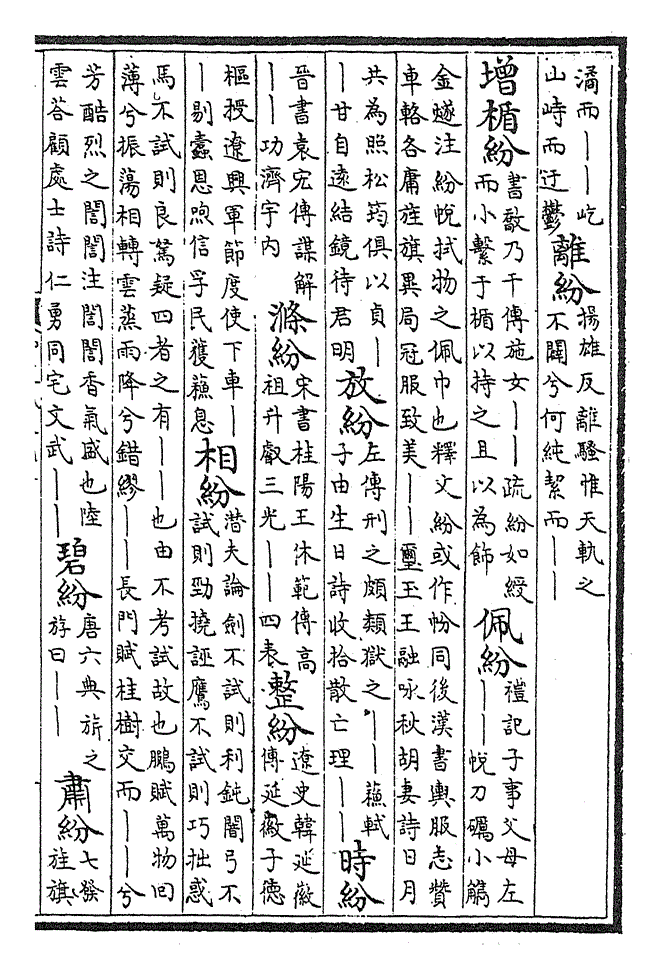 潏而——屹
山峙而迂鬱
離紛
揚雄反離騷惟天軌之
不闢兮何純絜而——
增楯紛
書敿乃干傳施女——疏紛如綬
而小繫于楯以持之且以為飾
佩紛
禮記子事父母左
——帨刀礪小觿
金燧注紛帨拭物之佩巾也釋文紛或作帉同後漢書輿服志贊
車輅各庸旌旗異局冠服致美——璽玉王融咏秋胡妻詩日月
共為照松筠俱以貞—
—甘自遠結鏡待君明
放紛
左傳刑之頗類獄之——蘇軾
子由生日詩收拾散亡理——
時紛
晉書袁宏傳謀解
——功濟宇內
滌紛
宋書桂陽王休範傳高
祖升叡三光——四表
整紛
遼史韓延徽
傳延徽子德
樞授遼興軍節度使下車—
—剔蠹恩煦信孚民獲蘇息
相紛
潛夫論劍不試則利鈍闇弓不
試則勁撓誣鷹不試則巧拙惑
馬不試則良駑疑四者之有——也由不考試故也鵬賦萬物回
薄兮振蕩相轉雲蒸雨降兮錯繆——長門賦桂樹交而——兮
芳酷烈之誾誾注誾誾香氣盛也陸
雲荅顧處士詩仁勇同宅文武——
碧紛
唐六典旂之
斿曰——
肅紛
七發
旌旗